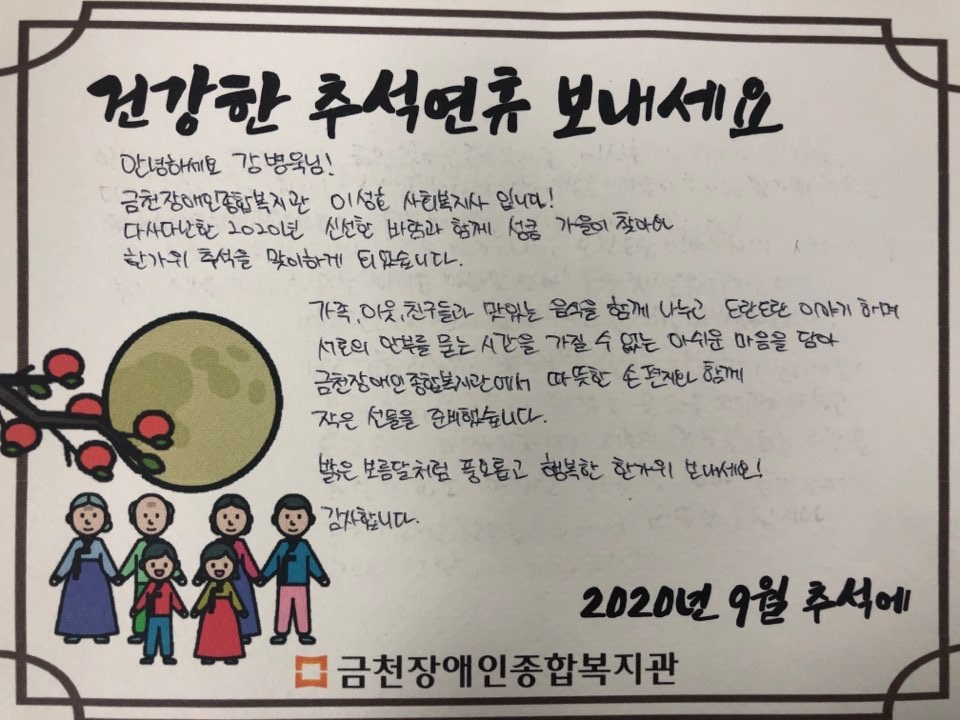 건강한 추석연휴 보내세요
안녕하세요 강병욱님!
금천장애인종합복지관 이성호 사회복지사 입니다!
다사다난한 2020년 신선한 바람과 함께 성큼 가을이 찾아와
한가위 추석을 맞이하게 되었습니다.
가족, 이웃, 친구들과 맛있는 음식을 함께 나누고 도란도란 이야기 하며
서로의 안부를 묻는 시간을 가질 수 없는 아쉬운 마음을 담아
금천장애인종합복지관에서 따뜻한 손편지와 함께
작은 선물을 준비했습니다.
밝은 보름달처럼 풍요롭고 행복한 한가위 보내세요!
감사합니다.
2020년 9월 추석에
금천장애인종합복지관